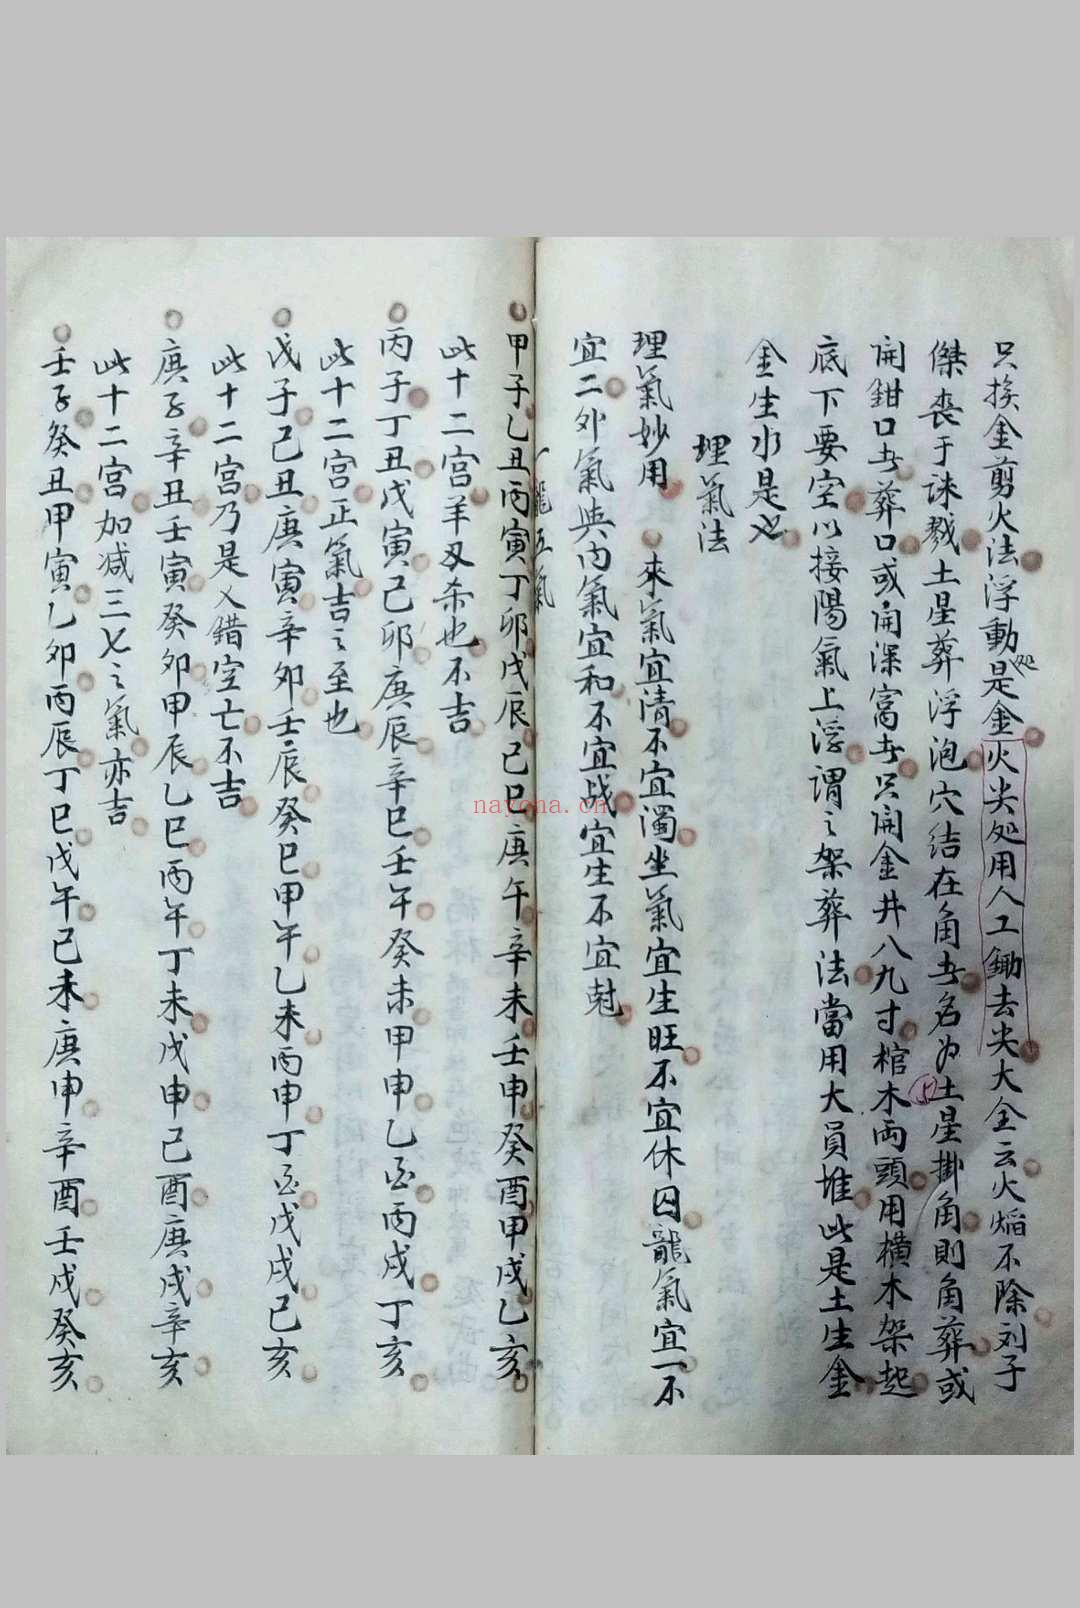 只挨金剪火法浮動処是金火尖処用人工鋤去尖大全云火焰不除刘子
傑喪于誅戮土星葬浮泡穴結在角者名为土星掛角則角葬或
開鉗口者葬口或開深窩者只開金井八九寸棺木両頭用横木架起
底下要空以接陽氣上浮謂之架葬法當用大員堆此是土生金
金生水是也
理氣法
理氣妙用 來氣宜清不宜濁坐氣宜生旺不宜休囚龍氣宜一不
宜二外氣與内氣宜和不宜战宜生不宜尅
龍五氣
甲子乙丑丙寅丁卯戊辰己巳庚午辛未壬申癸酉甲戌乙亥
此十二宫羊刃杀也不吉
丙子丁丑戊寅己卯庚辰辛巳壬午癸未甲申乙酉丙戌丁亥
此十二宫正氣吉之至也
戊子己丑庚寅辛卯壬辰癸巳甲午乙未丙申丁酉戊戌己亥
此十二宫乃是乂錯空亡不吉
庚子辛丑壬寅癸卯甲辰乙巳丙午丁未戊申己酉庚戌辛亥
此十二宫加减三七之氣亦吉
壬子癸丑甲寅乙卯丙辰丁巳戊午己未庚申辛酉壬戌癸亥
nayona.cn